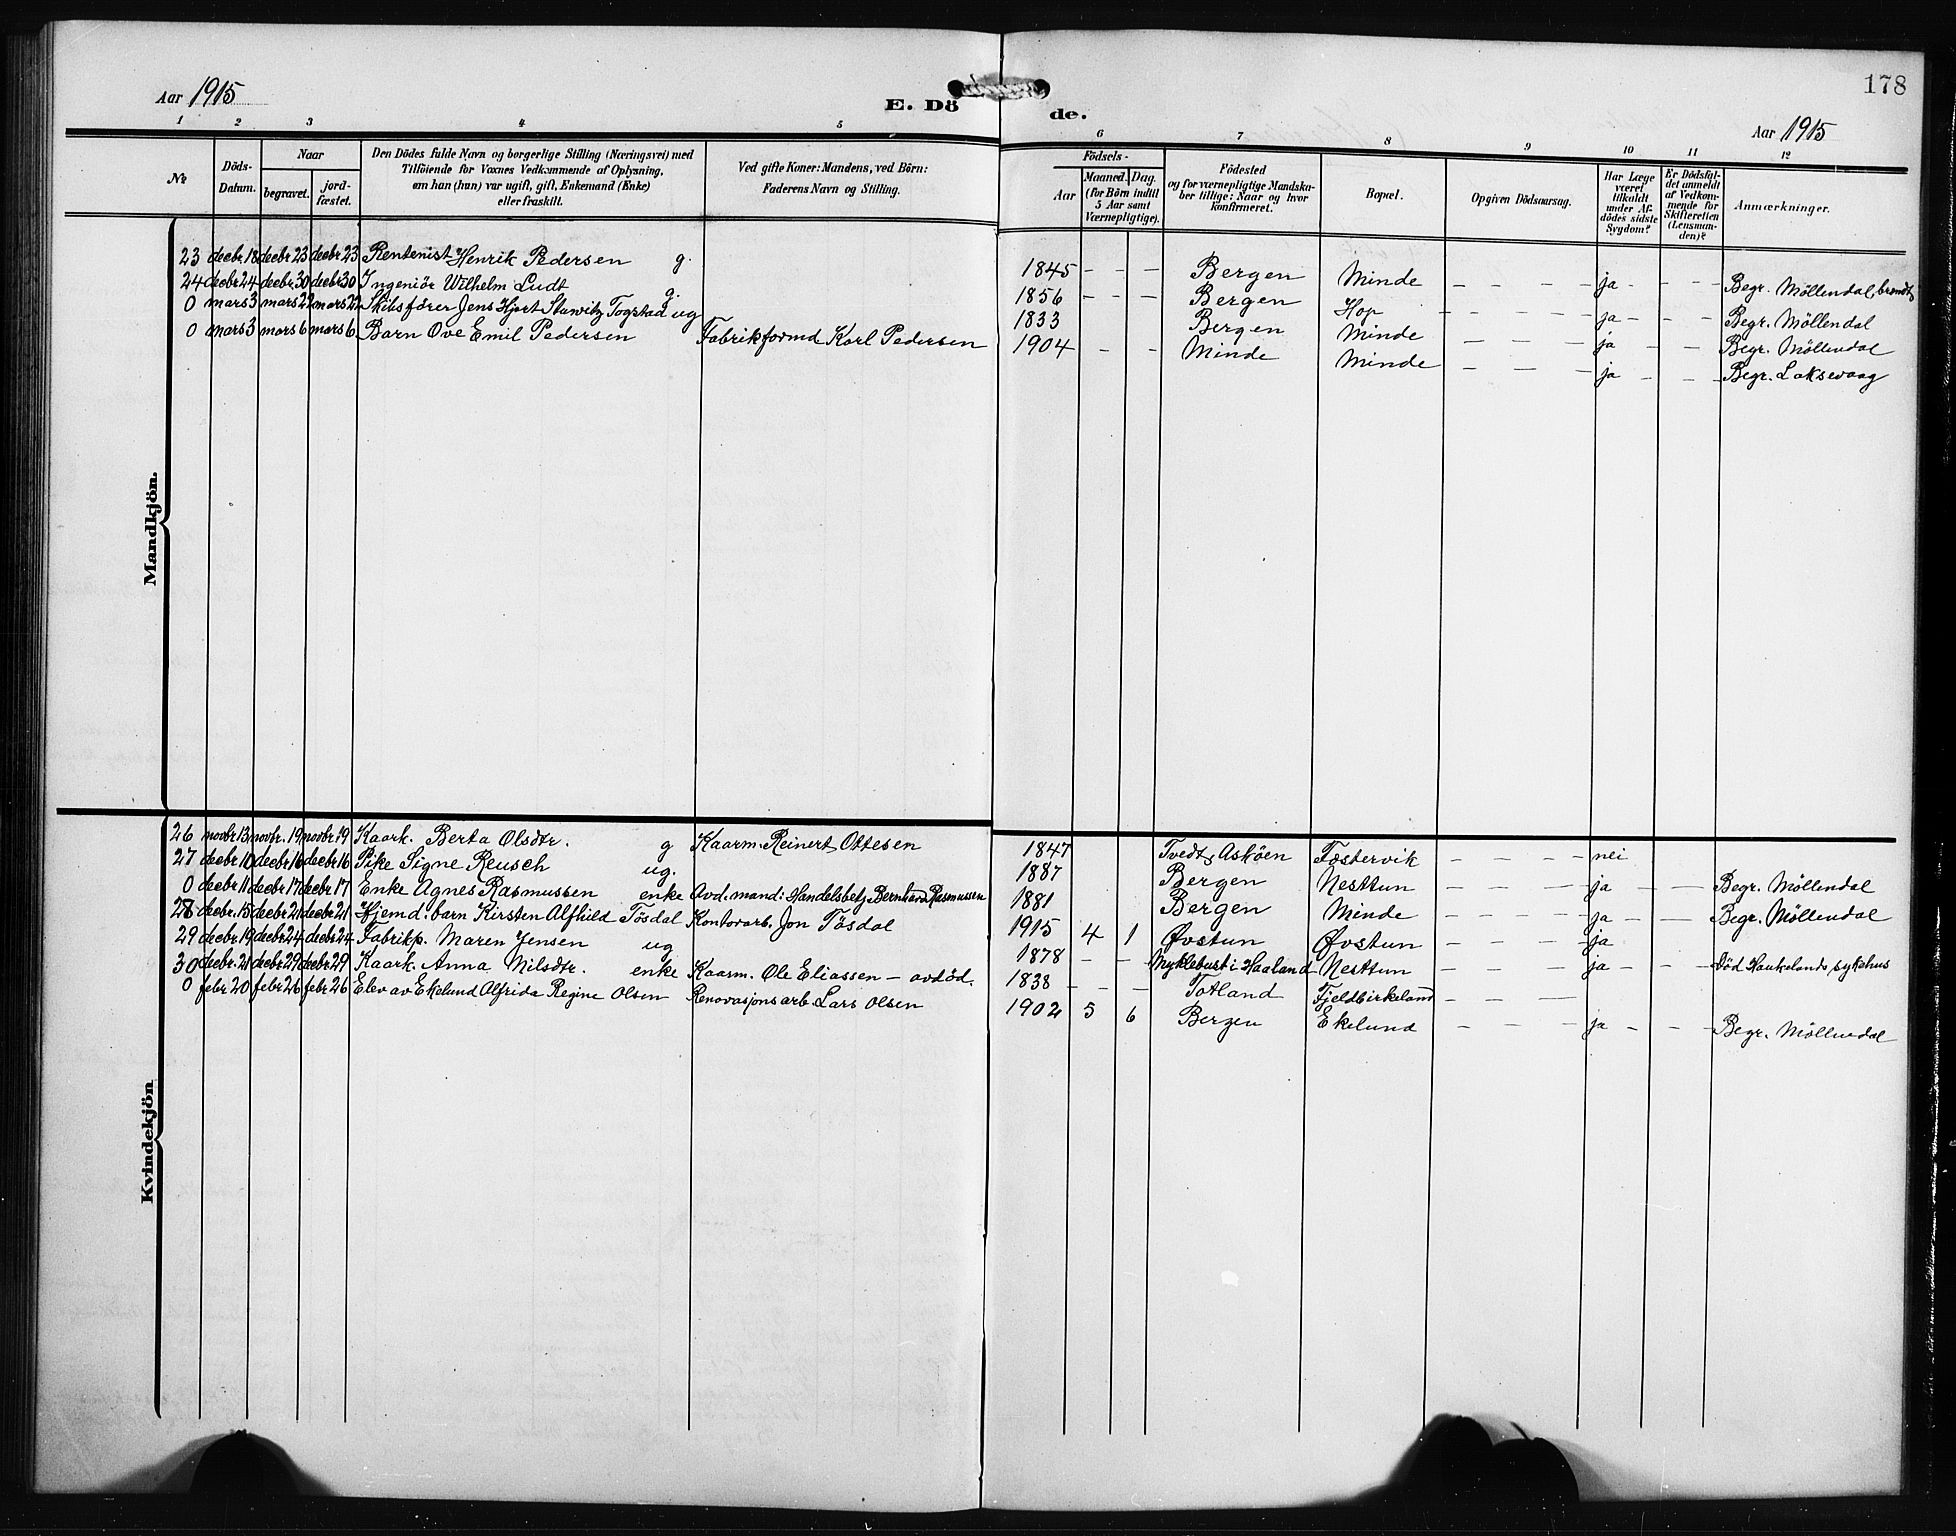 178
Aar 1915
E. Dö
de.
Aar 1915
1 2 3 4 5 6 7 8 9 10 11 12
№
Döds-
Datum.
Naar
begravet.
jord-
fæstet.
Den Dödes fulde Navn og borgerlige Stilling (Næringsvei) med
Tilföiende for Voxnes Vedkommende af Oplysning,
om han (hun) var ugift, gift, Enkemand (Enke)
eller fraskilt.
Ved gifte Koner: Mandens, ved Börn:
Faderens Navn og Stilling.
Födsels-
Aar
Maaned. Dag.
(for Börn indtil
5 Aar samt
Værnepligtige).
Födested
og for værnepligtige Mandska-
ber tillige: Naar og hvor
konfirmeret.
Bopæl.
Opgiven Dödsaarsag.
Har Læge
været
tilkaldt
under Af-
dödes sidste
Sygdom?
Er Dödsfal-
det anmeldt
af Vedkom-
mende for
Skifteretten
(Lensman-
den)?
Anmærkninger.
Mandkjön.
23 decbr. 18 decbr 23 decbr 23 Rentenist Henrik Pedersen g. 1845 - - - Bergen Minde - - - ja - - - Begr. Möllendal, brændt
24 decbr 24 decbr 30 decbr 30 Ingeniör Wilhelm Ludt g. 1856 - - - Bergen Hop - - - ja - - - Begr. Möllendal
0 mars 3 mars 22 mars 22 Skibsförer Jens Hjort Stuwitz Togstad ug 1833 Bergen Minde - - - ja - - - Begr. Möllendal
0 mars 3 mars 6 mars 6 Barn Ove Emil Pedersen Fabrikformd Karl Pedersen 1904 - - Minde Minde - - - ja - - - Begr. Laksevaag
Kvindekjön
26 novbr 13 novbr. 19 novbr 19 Kaark. Berta Olsdtr. g Kaarm. Reinert Ottesen 1847 Tvedt, Asköen Fæstervik - - - - nei
27 decbr 10 decbr 16 decbr 16 Pike Signe Reusch ug. 1887 Bergen Nesttun - - - - ja - - - Begr. Möllendal
0 decbr 11 decbr 17 decbr 17 Enke Agnes Rasmussen enke Avd. mand: Handelsbetj. Bernhard Rasmussen 1881 Bergen Minde - - - - ja - - - Begr. Möllendal
28 decbr. 15 decbr 21 decbr 21 Hjemd. barn Kirsten Alfhild Tösdal Kontorarb. Jon Tösdal 1915 4 1 Øvstun Øvstun - - - ja
29 decbr. 19 decbr 24 decbr 24 Fabrikp. Maren Jensen ug 1878 - - Myklebust i Haaland Nesttun - - - ja - - - Död Haukelands sykehus
30 decbr. 21 decbr 29 decbr 29 Kaark. Anna Nilsdtr. enke Kaarm. Ole Eliassen - avdöd. 1838 - - - Totland Fjeldbirkeland - - -
0 febr 20 febr 26 febr 26 Elev av Ekelund Alfrida Regine Olsen Renovasjonsarb. Lars Olsen 1902 5 6 Bergen Ekelund - - - ja - - - Begr. Möllendal